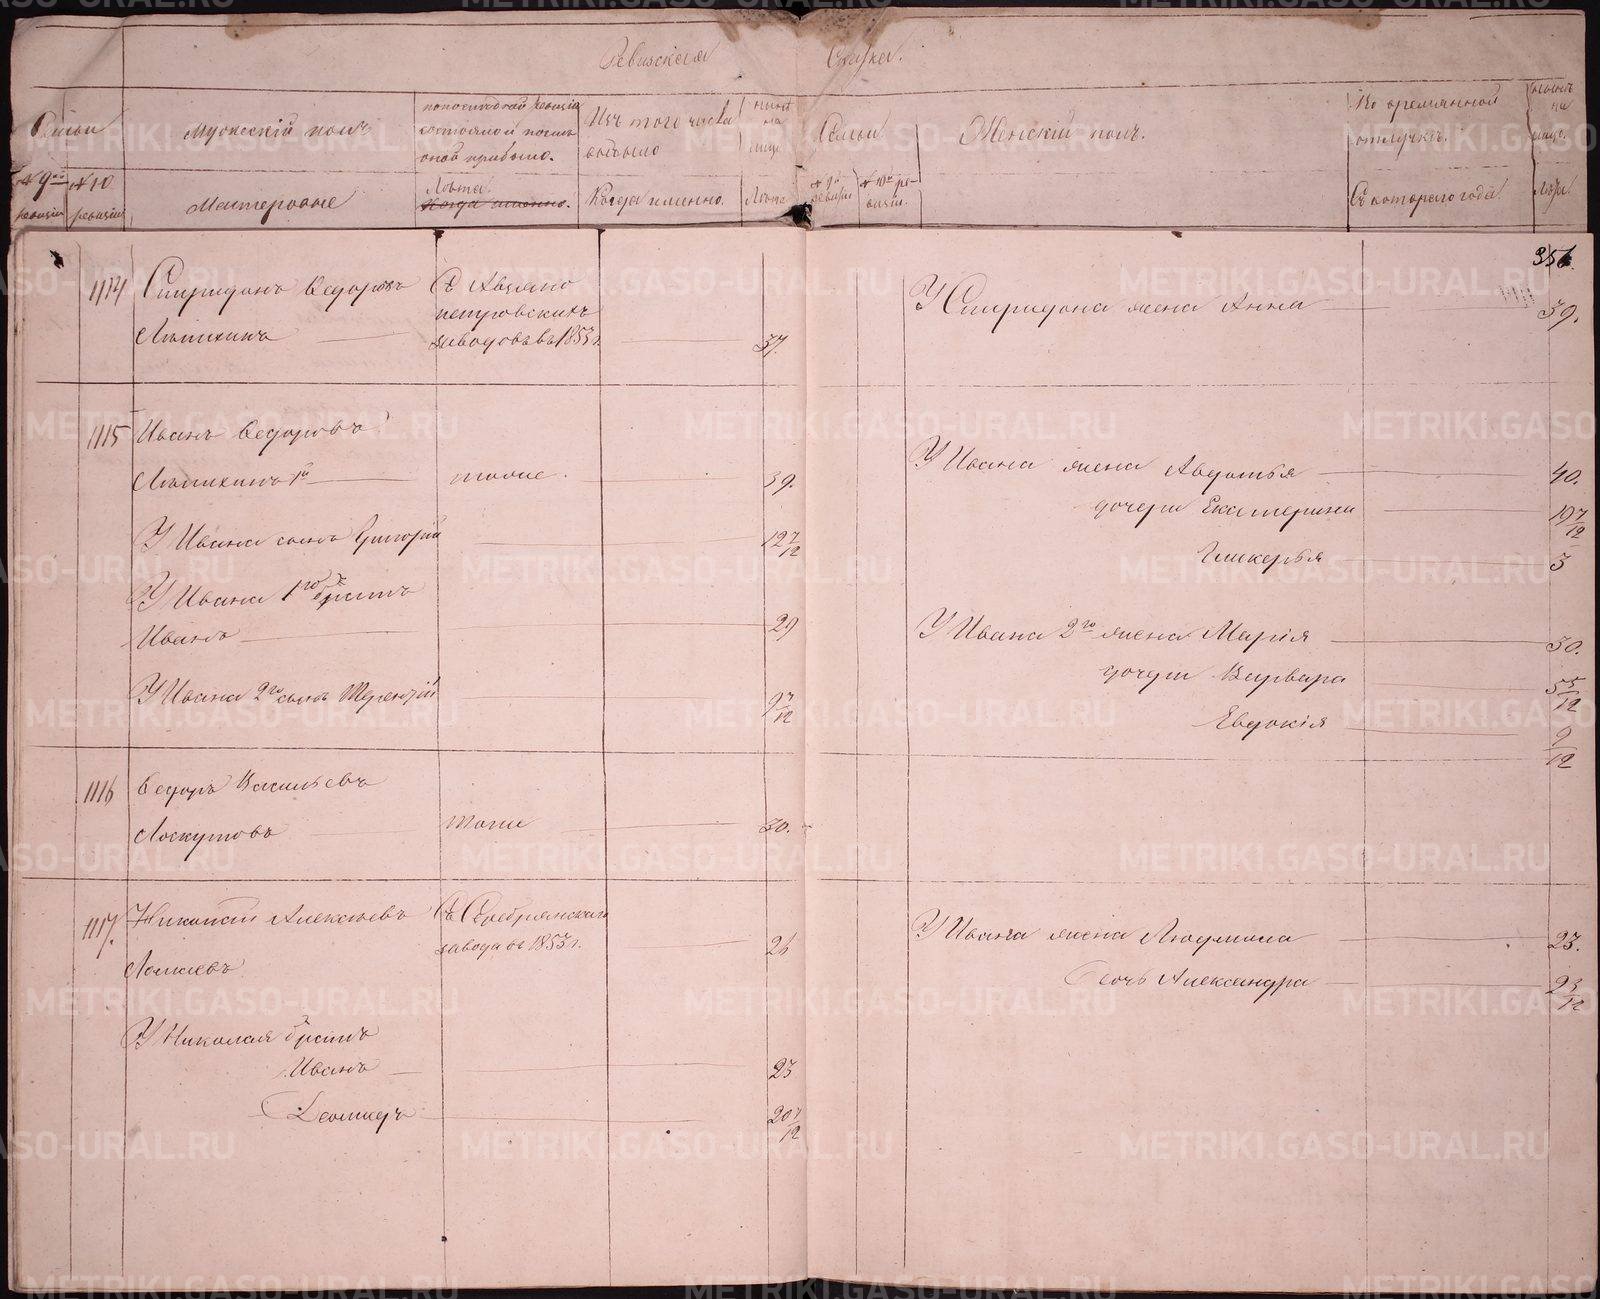 Ревизская Сказка.
Семьи
Мужескій полъ
по последней ревизіи состояло и после оной прибыло.
Изъ того числа выбыло
ныне на лицо
Семьи
Женскій полъ.
Во временной отлучкѣ.
ныне на лицо.
№ 9й ревизіи
№ 10 ревизіи
Мастеровые
Лета.
Когда именно.
Когда именно.
Лета
№ 9й ревизіи
№ 10й ревизіи.
Съ котораго года.
Лета
356.
1114
Спиридонъ Ѳедоровъ
Съ Авзяно
Петровскихъ
заводовъ въ 1853 г.
37.
У Спиридона жена Анна
39.
1115
Иванъ Ѳедоровъ
1й
тоже.
39.
У Ивана жена Авдотья
40.
дочери Екатерина
19 7/12
У Ивана сынъ Григорій
12 7/12
Гликерья
3
У Ивана 1го братъ
Иванъ
29
У Ивана 2го жена Марія
30.
дочери Варвара
5 5/12
У Ивана 2го сынъ Терентій
9 7/12
Евдокія
9/12
1116
Ѳедоръ Васильевъ
Лоскутовъ
тоже
30.
1117.
Николай Алексѣевъ
Съ Серебрянскаго
завода въ 1853 г.
26
У Ивана жена Людмила
23.
Дочь Александра
2 3/12
У Николая братъ
Иванъ
23
20 7/12
METRIKI.GASO-URAL.RU